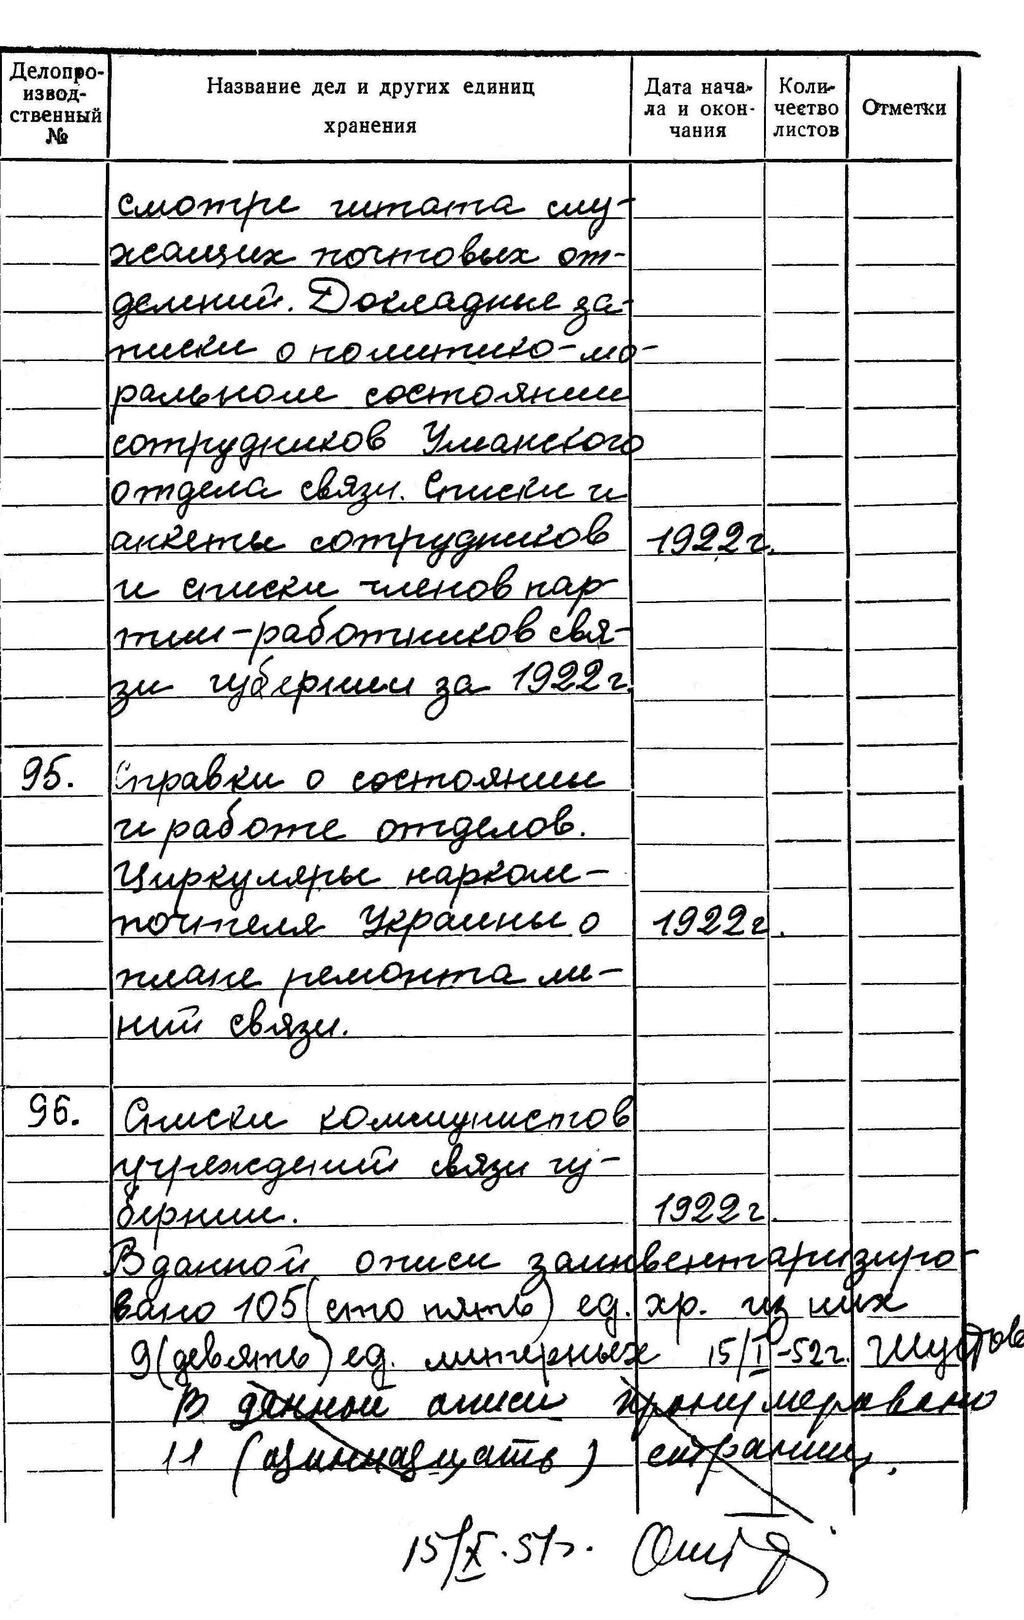 Делопро-
извод-
ственный
№
Название дел и других единиц
хранения
Дата нача-
ла и окон-
чания
Коли-
чество
листов
Отметки
смотре штата слу-
жащих почтовых от-
делений. Докладные за-
писки о политико-мо-
ральном состоянии
сотрудников Уманского
отдела связи. Списки и
анкеты сотрудников 1922г.
и списки членов пар
тии-работников свя-
зи губернии за 1922г.
95. Справки о состоянии
и работе отделов.
Циркуляры нарком-
почтеля Украины о 1922г.
плане ремонта ли-
ний связи.
96. Списки коммунистов
учреждений связи гу-
бернии. 1922г
В данной описи заинвентаризиро-
вано 105 (сто пять) ед. хр. из них
9 (девять) ед. литерных 15/I-52г.
В данной описи пронумеровано
11 (одиннадцать) страниц.
15/X.51г.